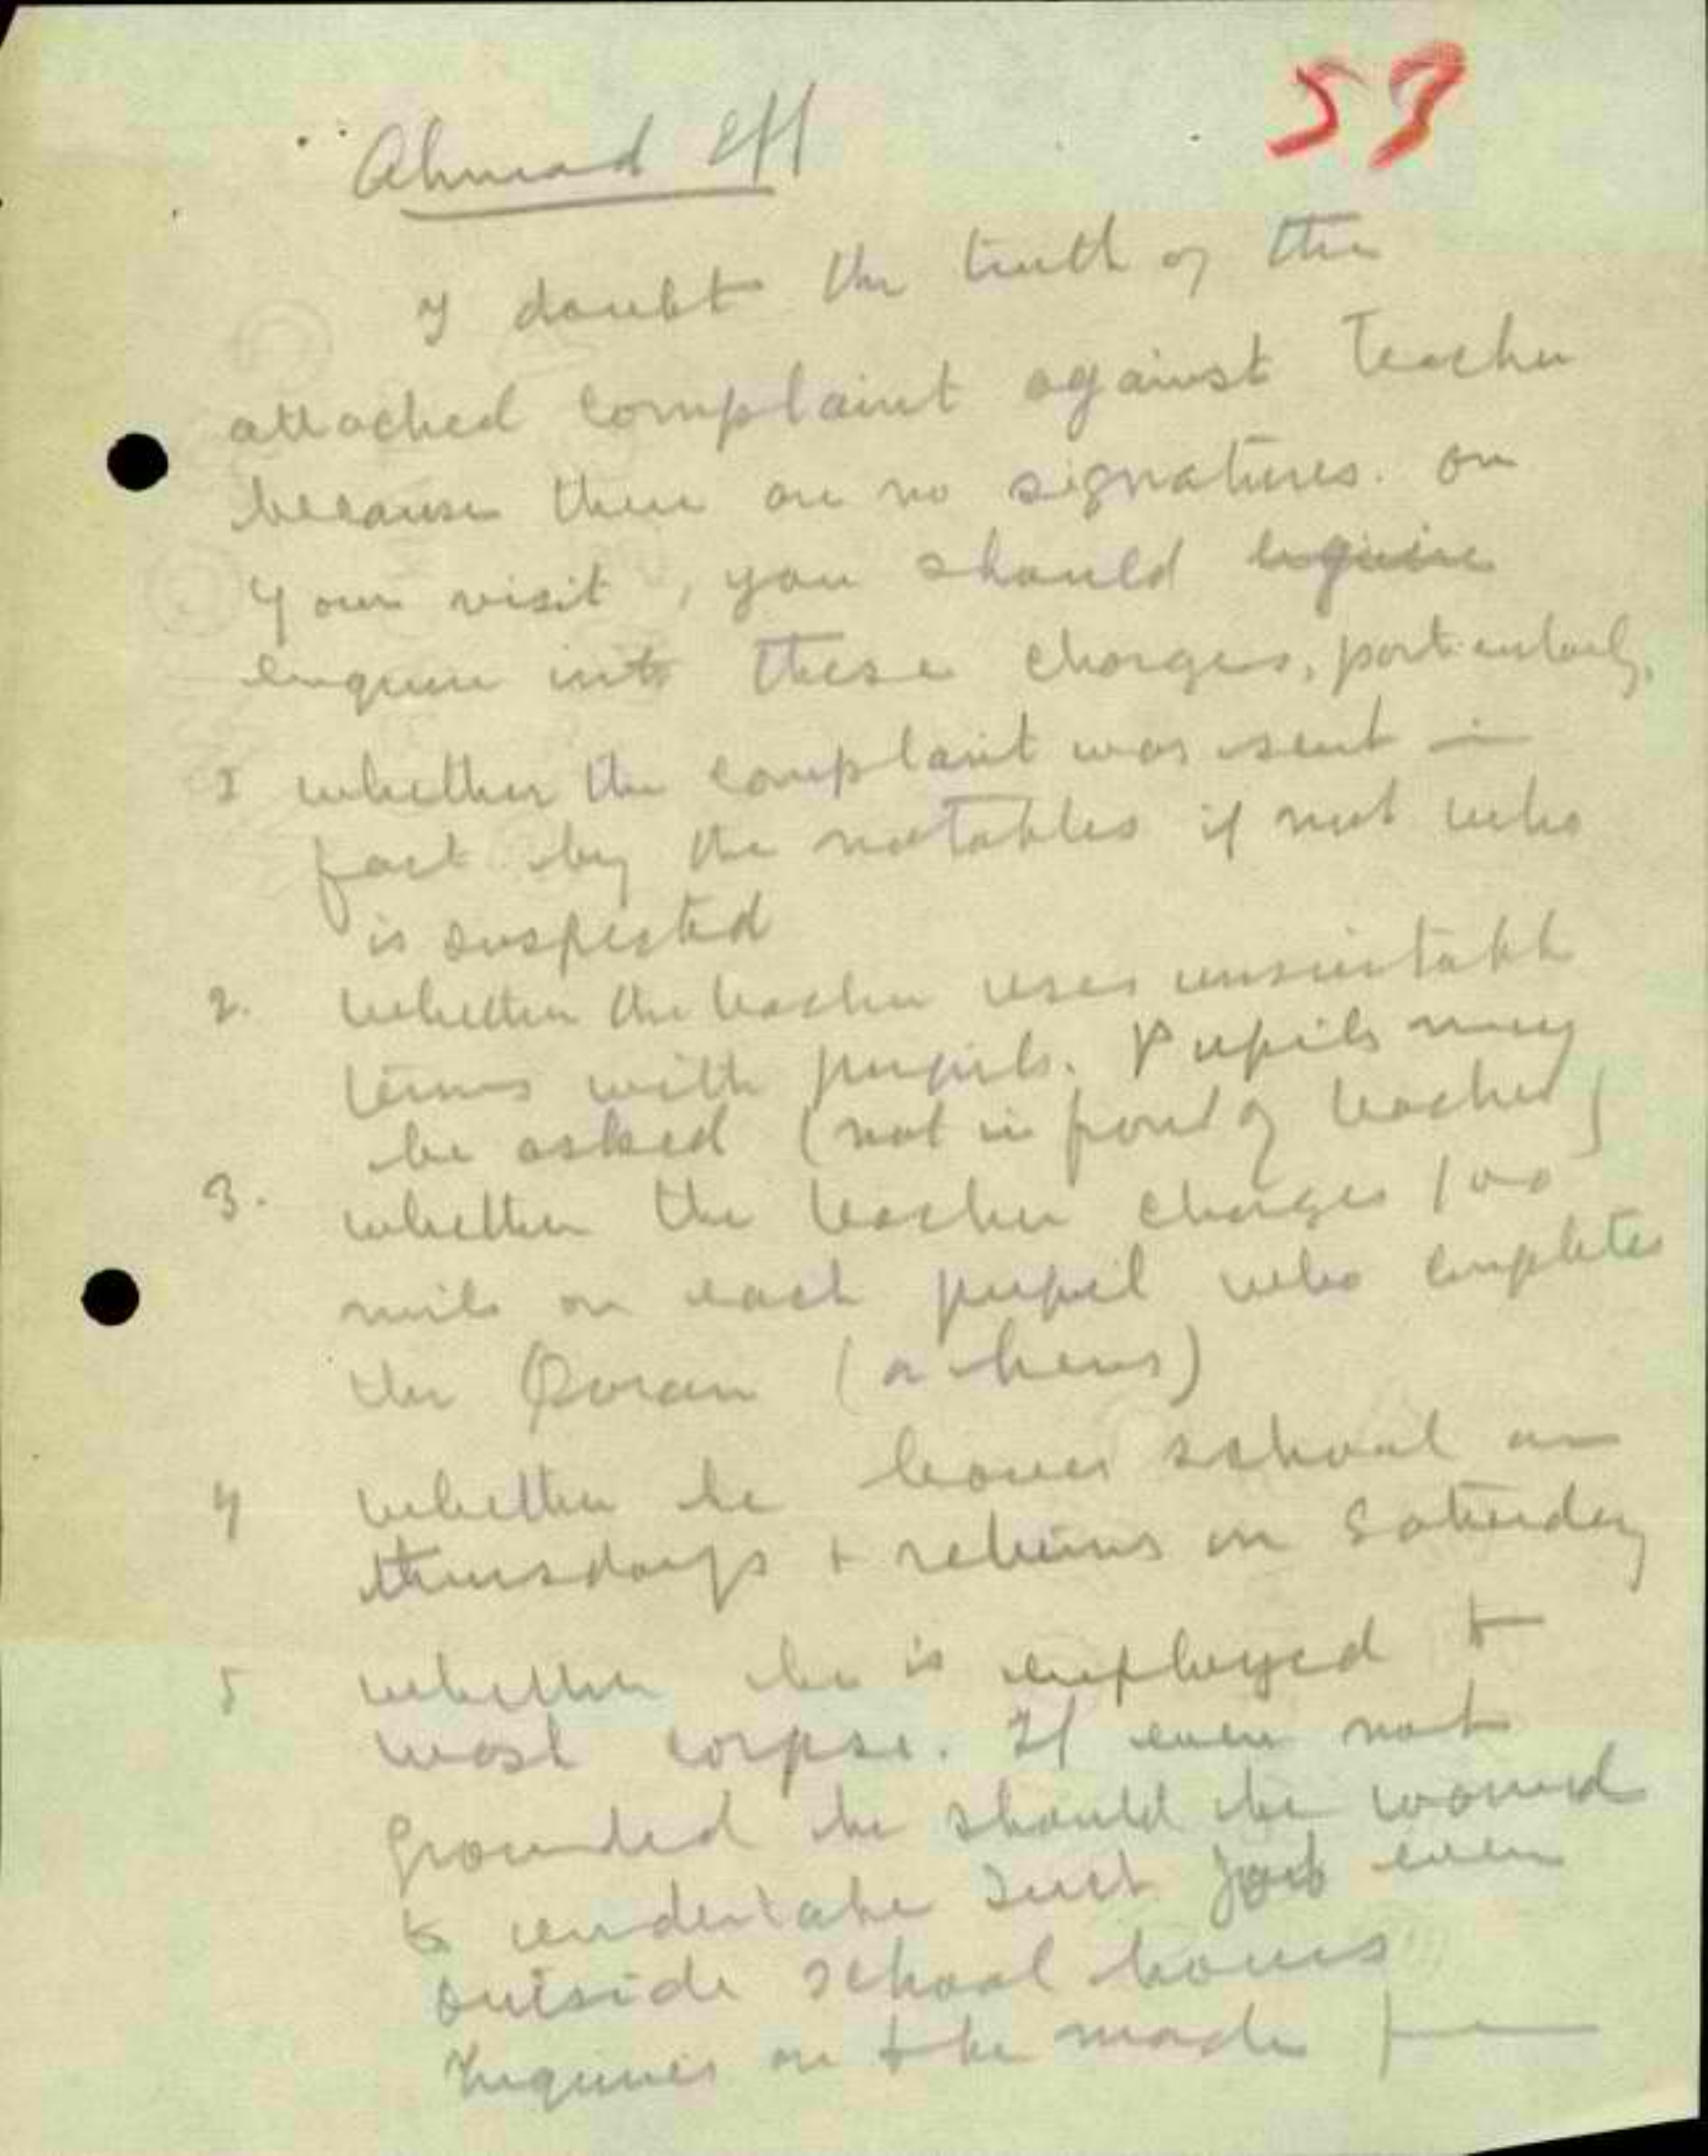 53
Ahmad Eff
I doubt the truth of the
attached complaint against Teacher
because there are no signatures. On
your visit, you should enquire
enquire into these charges, particularly,
1 whether the complaint was sent in
fact by the notables if not who
is suspected
2. whether the teacher uses unsuitable
terms with pupils. Pupils may
be asked (not in front of teacher)
3. whether the teacher charges 100
mils on each pupil who completes
the Quran (a hens)
4 whether he leaves school on
thursdays & returns on Saturday
5 whether he is employed to
wash corpse. If even not
grounded he should be warned
to undertake such job even
outside school hours
Enquiries are to be made